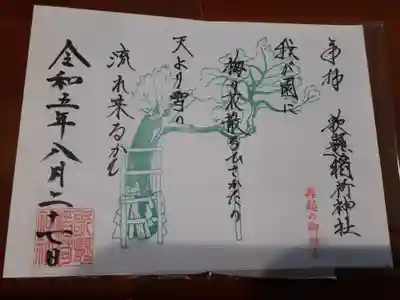 奉拝 歌懸稲荷神社
再起の御神木
我が園に
梅の花散るひさかたの
天より雪の
流れ来るかも
令和五年八月二十七日